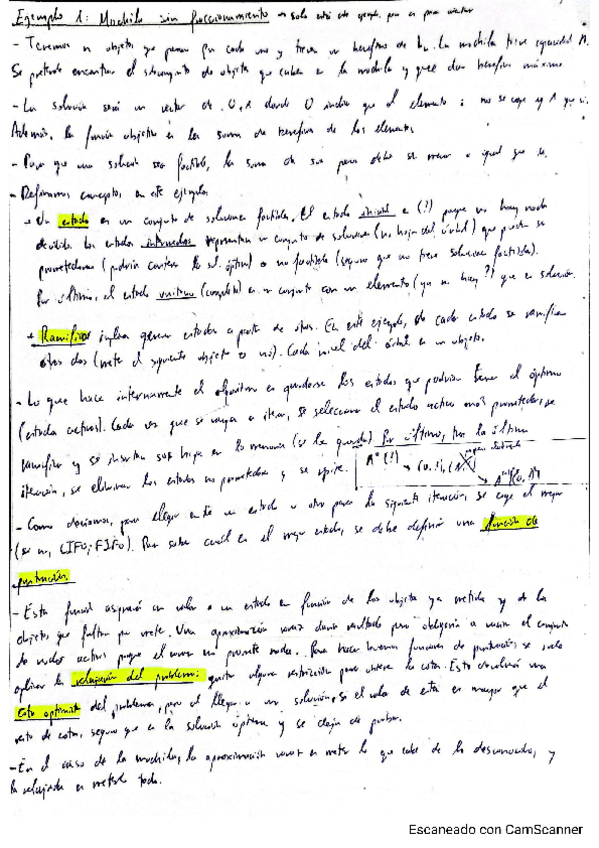 Ejemplo 1: Mochila sin fraccionamiento → solo está este ejemplo, pero es para
- Tenemos n objetos que pesan p cada uno y tienen un beneficio de b. La mochila tiene capacidad M.
Se pretende encontrar el subconjunto de objetos que caben en la mochila y que dan beneficio máximo.
- La solución será un vector de 0,1 donde 0 indica que el elemento i no se coge y 1 que sí.
Además, la función objetivo es la suma de beneficios de los elementos.
- Para que una solución sea factible, la suma de sus pesos debe ser menor o igual que M.
- Definamos conceptos en este ejemplo
→ Un estado es un conjunto de soluciones factibles. El estado inicial es (?) porque no hay nada
decidido. Los estados intermedios representan un conjunto de soluciones (no hojas del árbol) que pueden ser
prometedoras (podría contener la sol. óptima) o no factible (seguro que no tiene soluciones factibles).
Por último, el estado unitario (completo) es un conjunto con un elemento (ya no hay ?) que es solución.
→ Ramificar implica generar estados a partir de otros. En este ejemplo, de cada estado se ramifican
otros dos (mete el siguiente objeto o no). Cada nivel del árbol es un objeto.
- Lo que hace internamente el algoritmo es guardarse los estados que podrían tener el óptimo
(estados activos). Cada vez que se vaya a iterar, se selecciona el estado activo más prometedor, se
ramifica y se insertan sus hijos en la memoria (se los guarda). Por último, tras la última
iteración, se eliminan los estados no prometedores y se sigue.
A⁰(!)
- Como decíamos, para elegir entre un estado u otro para la siguiente iteración, se coge el mejor
(si no, LIFO, FIFO). Para saber cuál es el mejor estado, se debe definir una función de
puntuación.
- Esta función asignará un valor a un estado en función de los objetos ya metidos y de los
objetos que faltan por meter. Una aproximación voraz daría resultado pero obligaría a vaciar el conjunto
de nodos activos porque el voraz no promete nada. Para hacer buenas funciones de puntuación se suele
aplicar la relajación del problema: quitar alguna restricción para obtener la cota. Esto devolverá una
cota optimista del problema, pero al llegar a una solución, si el valor de esta es mayor que el
resto de cotas, seguro que es la solución óptima y se deja de probar.
- En el caso de la mochila, la aproximación voraz es meter lo que cabe de lo desconocido, y
la relajada es meterlo todo.
Escaneado con CamScanner